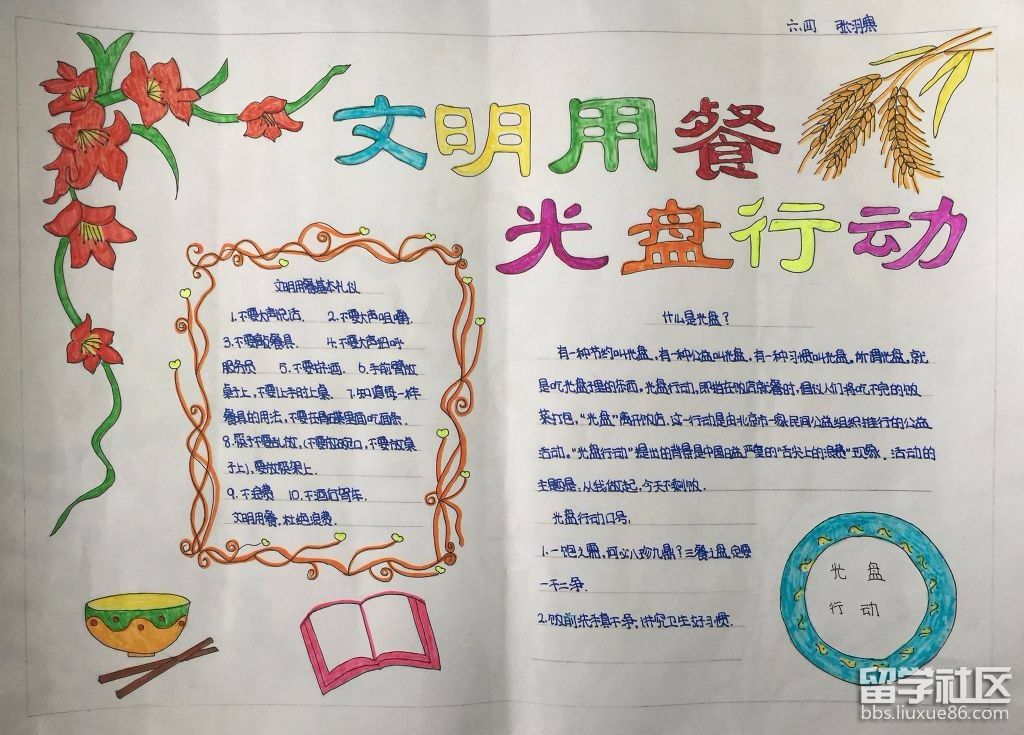 六.四 张羽
文明用餐
光盘行动
文明用餐基本礼仪
1.不要大声说话. 2.不要大声咀嚼.
3.不要敲餐具. 4.不要大声招呼
服务员 5.不要拼酒. 6.手前臂放
桌子上,不要让手肘上桌. 7.知道每一样
餐具的用法,不要在里面吃面条.
8.筷子不要乱放,(不要放碗口,不要放桌
子上),要放筷架上.
9.不浪费 10.不酒后驾车.
文明用餐,杜绝浪费.
什么是光盘?
有一种节约叫光盘,有一种公益叫光盘,有一种习惯叫光盘.所谓光盘,就
是吃光盘子里的东西.光盘行动,即指在饭店就餐时,倡议人们将吃不完的饭
菜打包,“光盘”离开饭店.这一行动是由北京市一家民间公益组织推行的公益
活动。“光盘行动”提出的背景是中国日益严重的“舌尖上的浪费”现象.活动的
主题是:从我做起,今天不剩饭.
光盘行动口号:
1.一饱之需,何必八珍九鼎?三餐之盘,定要
一干二净.
2.饭前洗手真干净,讲究卫生好习惯.
光盘
行动
留学社区
bbs.liuxue86.com